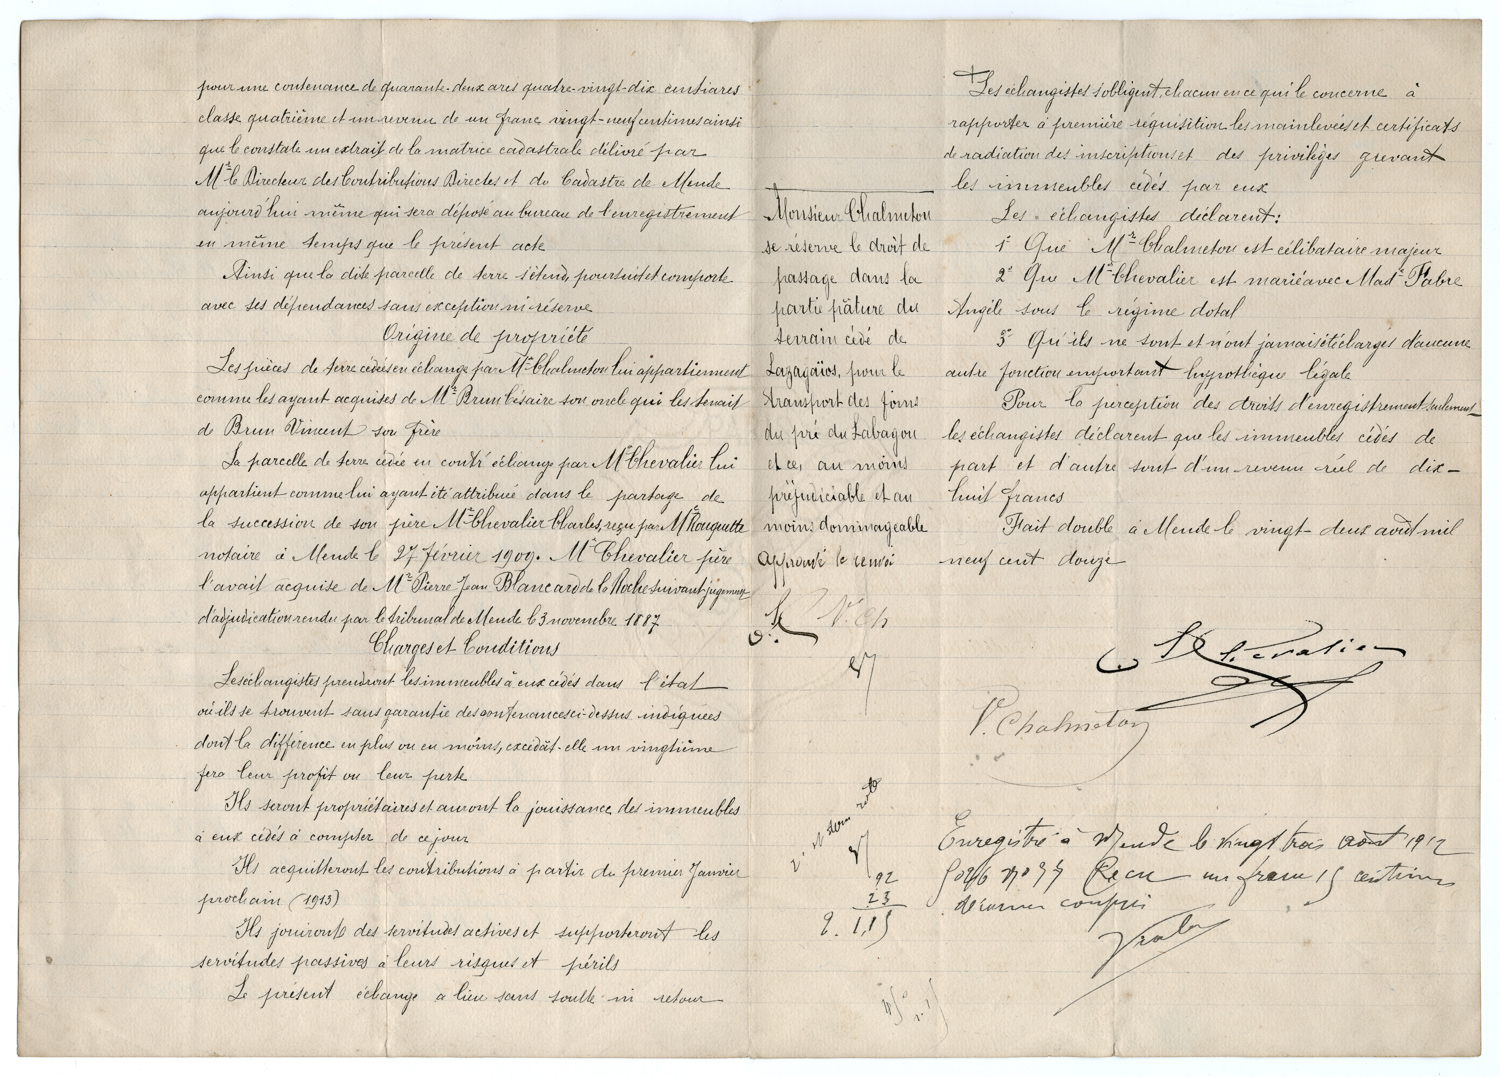 pour une contenance de quarante-deux ares quatre-vingt-dix centiares
classe quatrième et un revenu de un franc vingt-neuf centimes ainsi
que le constate un extrait de la matrice cadastrale délivré par
Mr le Directeur des Contributions Directes et du Cadastre de Mende
aujourd'hui même qui sera déposé au bureau de l'enregistrement
en même temps que le présent acte
Ainsi que la dite parcelle de terre s'étend, poursuit et comporte
avec ses dépendances sans exception ni réserve
Origine de propriété
Les pièces de terre cédées en échange par Mr Chalmeton lui appartiennent
comme les ayant acquises de Mr Brun Césaire son oncle qui les tenait
de Brun Vincent son frère
La parcelle de terre cédée en contr'échange par Mr Chevalier lui
appartient comme lui ayant été attribuée dans le partage de
la succession de son père Mr Chevalier Charles, reçu par Me Rouquette
notaire à Mende le 27 février 1909. Mr Chevalier père
l'avait acquise de Mr Pierre Jean Blancard de la Roche suivant jugement
d'adjudication rendu par le tribunal de Mende le 3 novembre 1887
Charges et Conditions
Les échangistes prendront les immeubles à eux cédés dans l'état
où ils se trouvent sans garantie des contenances ci-dessus indiquées
dont la différence en plus ou en moins, excédât-elle un vingtième
fera leur profit ou leur perte
Ils seront propriétaires et auront la jouissance des immeubles
à eux cédés à compter de ce jour
Ils acquitteront les contributions à partir du premier Janvier
prochain (1913)
Ils jouiront des servitudes actives et supporteront les
servitudes passives à leurs risques et périls
Le présent échange a lieu sans soulte ni retour
Monsieur Chalmeton
se réserve le droit de
passage dans la
partie pâture du
terrain cédé de
Lazagaïos, pour le
transport des foins
du pré du Labagou
et ce, au moins
préjudiciable et au
moins dommageable
Approuvé le renvoi
V. Ch
92
23
1,15
Les échangistes s'obligent, chacun en ce qui le concerne à
rapporter à première réquisition les mainlevées et certificats
de radiation des inscriptions et des privilèges grevant
les immeubles cédés par eux
Les échangistes déclarent:
1° Que Mr Chalmeton est célibataire majeur
2° Que Mr Chevalier est marié avec Made Fabre
Angèle sous le régime dotal
3° Qu'ils ne sont et n'ont jamais été chargés d'aucune
autre fonction emportant hypothèque légale
Pour la perception des droits d'enregistrement seulement
les échangistes déclarent que les immeubles cédés de
part et d'autre sont d'un revenu réel de dix-
huit francs
Fait double à Mende le vingt-deux août mil
neuf cent douze
Chevalier
V. Chalmeton
Enregistré à Mende le vingt trois août 1912
Reçu un franc 15 centimes
décimes compris